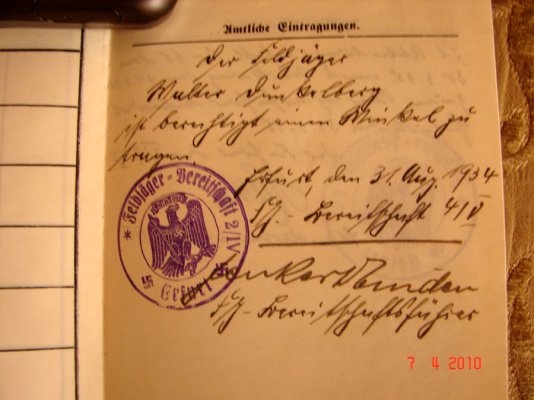 Amtliche Eintragungen.
Der Feldjäger
Walter Dunkelberg
ist berechtigt einen Winkel zu
tragen.
Erfurt, den 31. Aug. 1934
FJ.- Bereitschaft 4/V
FJ- Bereitschaftsführer
* Feldjäger-Bereitschaft 2/IV
Erfurt
7 4 2010